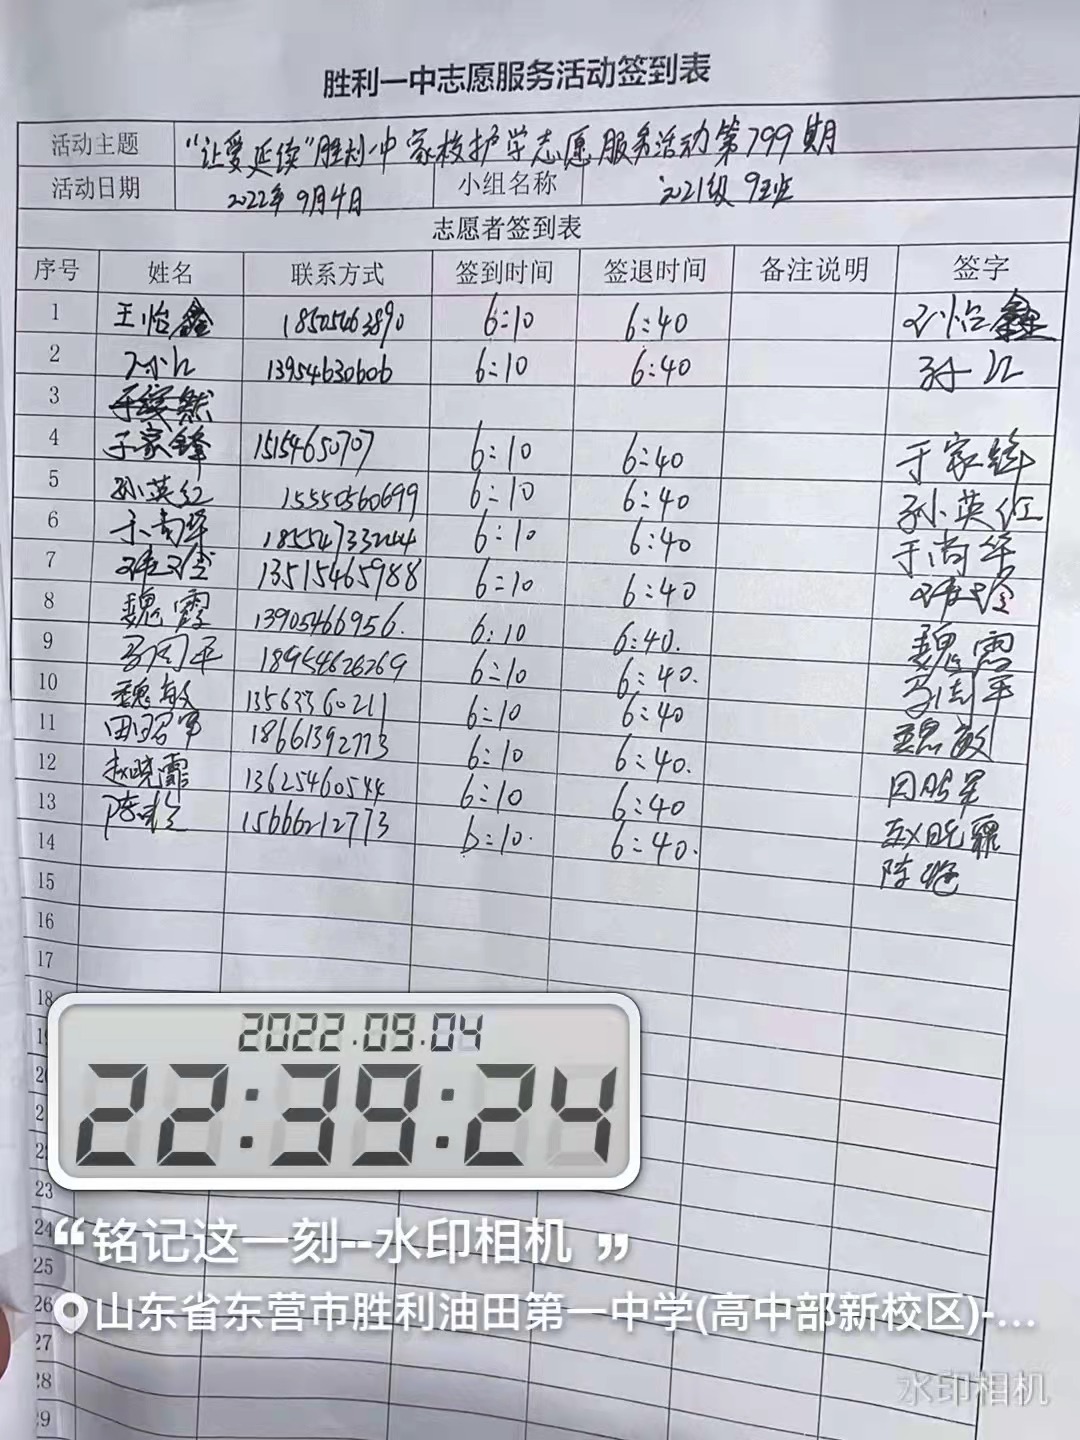 胜利一中志愿服务活动签到表
活动主题 “让爱延续”胜利一中家校护学志愿服务活动第799期
活动日期 2022年9月4日 小组名称 2021级9班
志愿者签到表
序号 姓名 联系方式 签到时间 签退时间 备注说明 签字
1 王怡鑫 18505463890 6:10 6:40 王怡鑫
2 孙江 13954630606 6:10 6:40 孙江
3
4 于家锋 15154650707 6:10 6:40 于家锋
5 孙英红 15550560699 6:10 6:40 孙英红
6 于尚华 18554733244 6:10 6:40 于尚华
7 13515465988 6:10 6:40
8 魏霞 13905466956. 6:10 6:40. 魏霞
9 18954626269 6:10 6:40.
10 魏敏 13563360211 6:10 6:40 魏敏
11 田昭军 18661392773 6:10 6:40.
12 赵晓霏 13625460544 6:10 6:40 赵晓霏
13 陈 15666212773 6:10. 6:40. 陈
14
15
16
17
18
2022.09.04
22:39:24
23
24
“铭记这一刻--水印相机”
25
26
山东省东营市胜利油田第一中学(高中部新校区)-...
27
28
水印相机
29